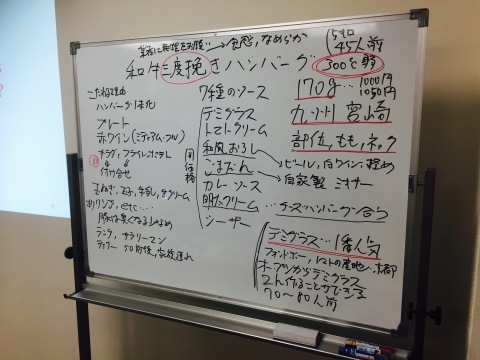 食感、なめらか
5キロ
45人前
和牛三度挽きハンバーグ
300℃弱
170g… 1000円
1050円
九州 宮崎
部位、もも、ネック
こだわり理由
ハンバーグ1本化
プレート
赤ワイン(ミディアム・フル)
サラダ、フライドポテト
付け合せ
同価格
玉ねぎ、玉子、牛乳、生クリーム
etc…
ランチ、サラリーマン
ディナー 50前後、家族連れ
7種のソース
デミグラス
トマトクリーム
和風おろし
ごまだれ
カレーソース
明太クリーム
シーザー
ビール、白ワイン、軽め
自家製
…チーズハンバーグ合う
デミグラス…1番人気
フォンドボー、トマトの産地
オープンからデミグラス
70〜80人前